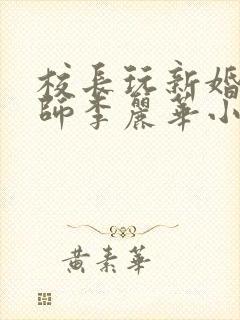 校長玩新婚
師李麗華小
黄素華